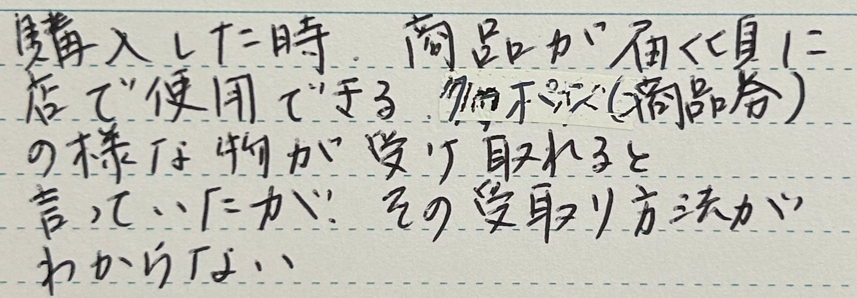 購入した時、商品が届く頃に
店で使用できる (商品券)
の様な物が受け取れると
言っていたが、その受取り方法が
わからない